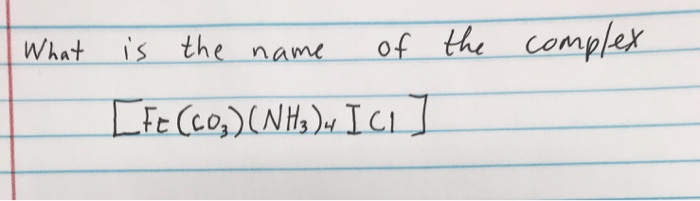 What is the name of the complex
[Fe(CO₃)(NH₃)₄ICl]